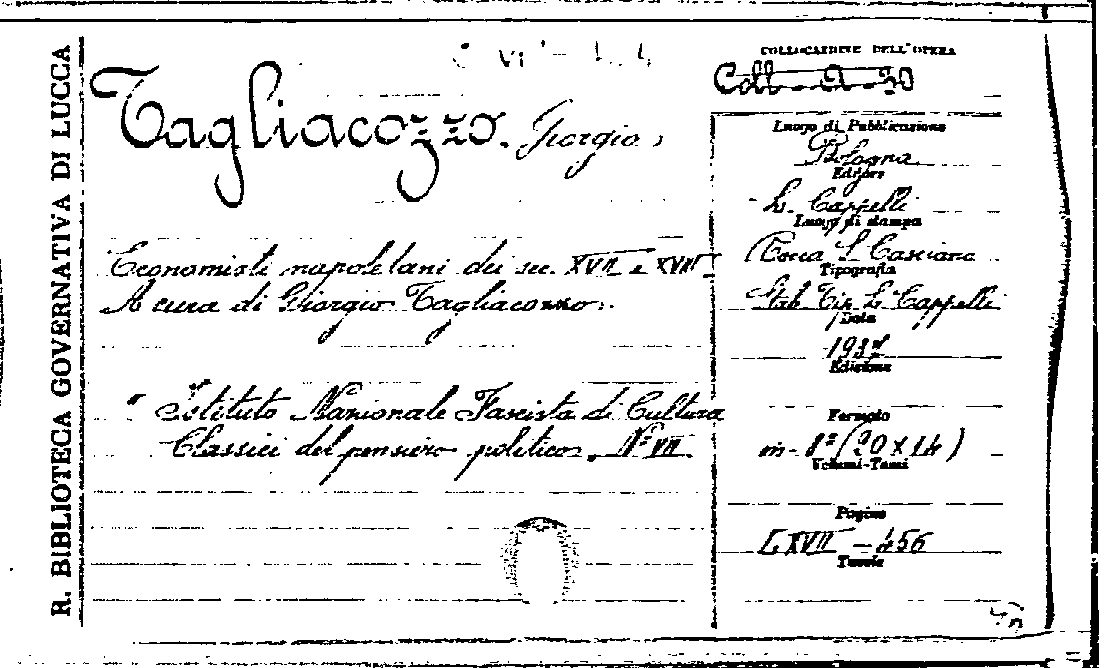 R. BIBLIOTECA GOVERNATIVA DI LUCCA
Tagliacozzo. Giorgio.
Economisti napoletani dei sec. XVII e XVIII
A cura di Giorgio Tagliacozzo.
" Istituto Nazionale Fascista di Cultura
Classici del pensiero politico. Nº VII
COLLOCAZIONE DELL'OPERA
Coll-A-30
Luogo di Pubblicazione
Bologna
Editore
L. Cappelli
Luogo di stampa
Rocca S. Casciano
Tipografia
Stab. Tip. L. Cappelli
Data
1937
Edizione
Formato
in-8º (20 x 14)
Volumi-Tomi
Pagine
LXVII - 456
Tavole